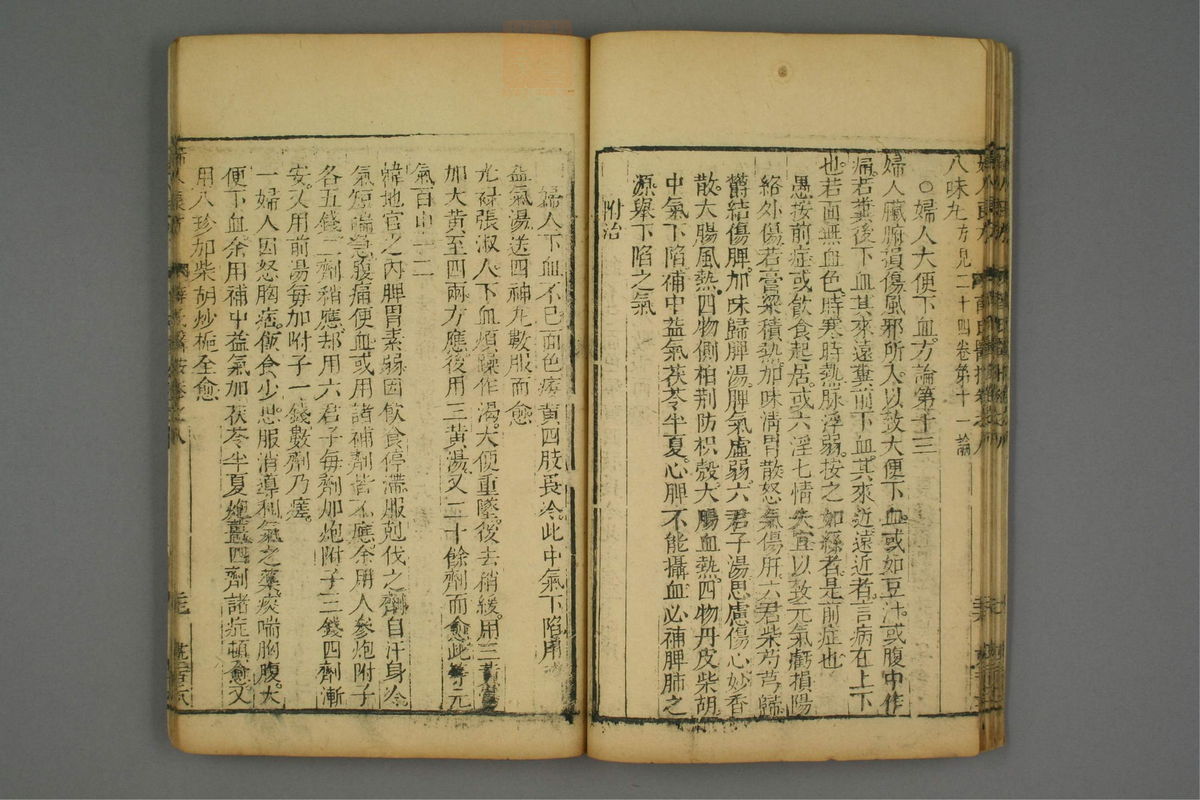 八味丸方見二十四卷第十一論
○婦人大便下血方論第十三
婦人臟腑損傷風邪所入以致大便下血或如豆汁或腹中作
痛若糞後下血其來遠糞前下血其來近遠近者言病在上下
也若面無血色時寒時熱脉浮弱按之如絲者是前症也
愚按前症或飲食起居或六淫七情失宜以致元氣虧損陽
絡外傷若膏粱積熱加味清胃散怒氣傷肝六君柴芍芎歸
鬱結傷脾加味歸脾湯脾氣虛弱六君子湯思慮傷心妙香
散大腸風熱四物側柏荆防枳殼大腸血熱四物丹皮柴胡
中氣下陷補中益氣茯苓半夏心脾不能攝血必補脾肺之
源舉下陷之氣
附治
婦人下血不已面色痿黃四肢畏冷此中氣下陷用
益氣湯送四神丸數服而愈
光祿張淑人下血煩躁作渴大便重墜後去稍緩用三黃
加大黃至四兩方應後用三黃湯又二十餘劑而愈此等元
氣百中一二
韓地官之內脾胃素弱因飲食停滯服剋伐之劑自汗身冷
氣短喘急腹痛便血或用諸補劑皆不應余用人參炮附子
各五錢二劑稍應却用六君子每劑加炮附子三錢四劑漸
安又用前湯每加附子一錢數劑乃瘥
一婦人因怒胸痞飲食少思服消導利氣之藥痰喘胸腹大
便下血余用補中益氣加茯苓半夏炮薑四劑諸症頓愈又
用八珍加柴胡炒梔全愈